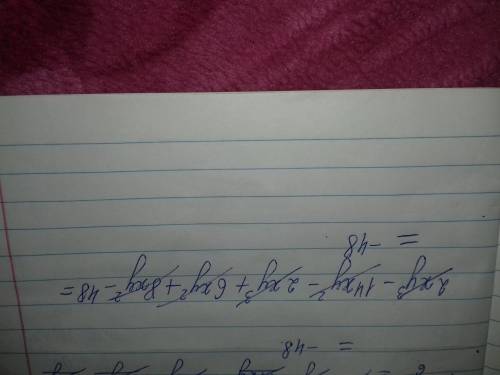 = -48
2xy³ - 14xy² - 2xy³ + 6xy² + 8xy² - 48 =
= -48